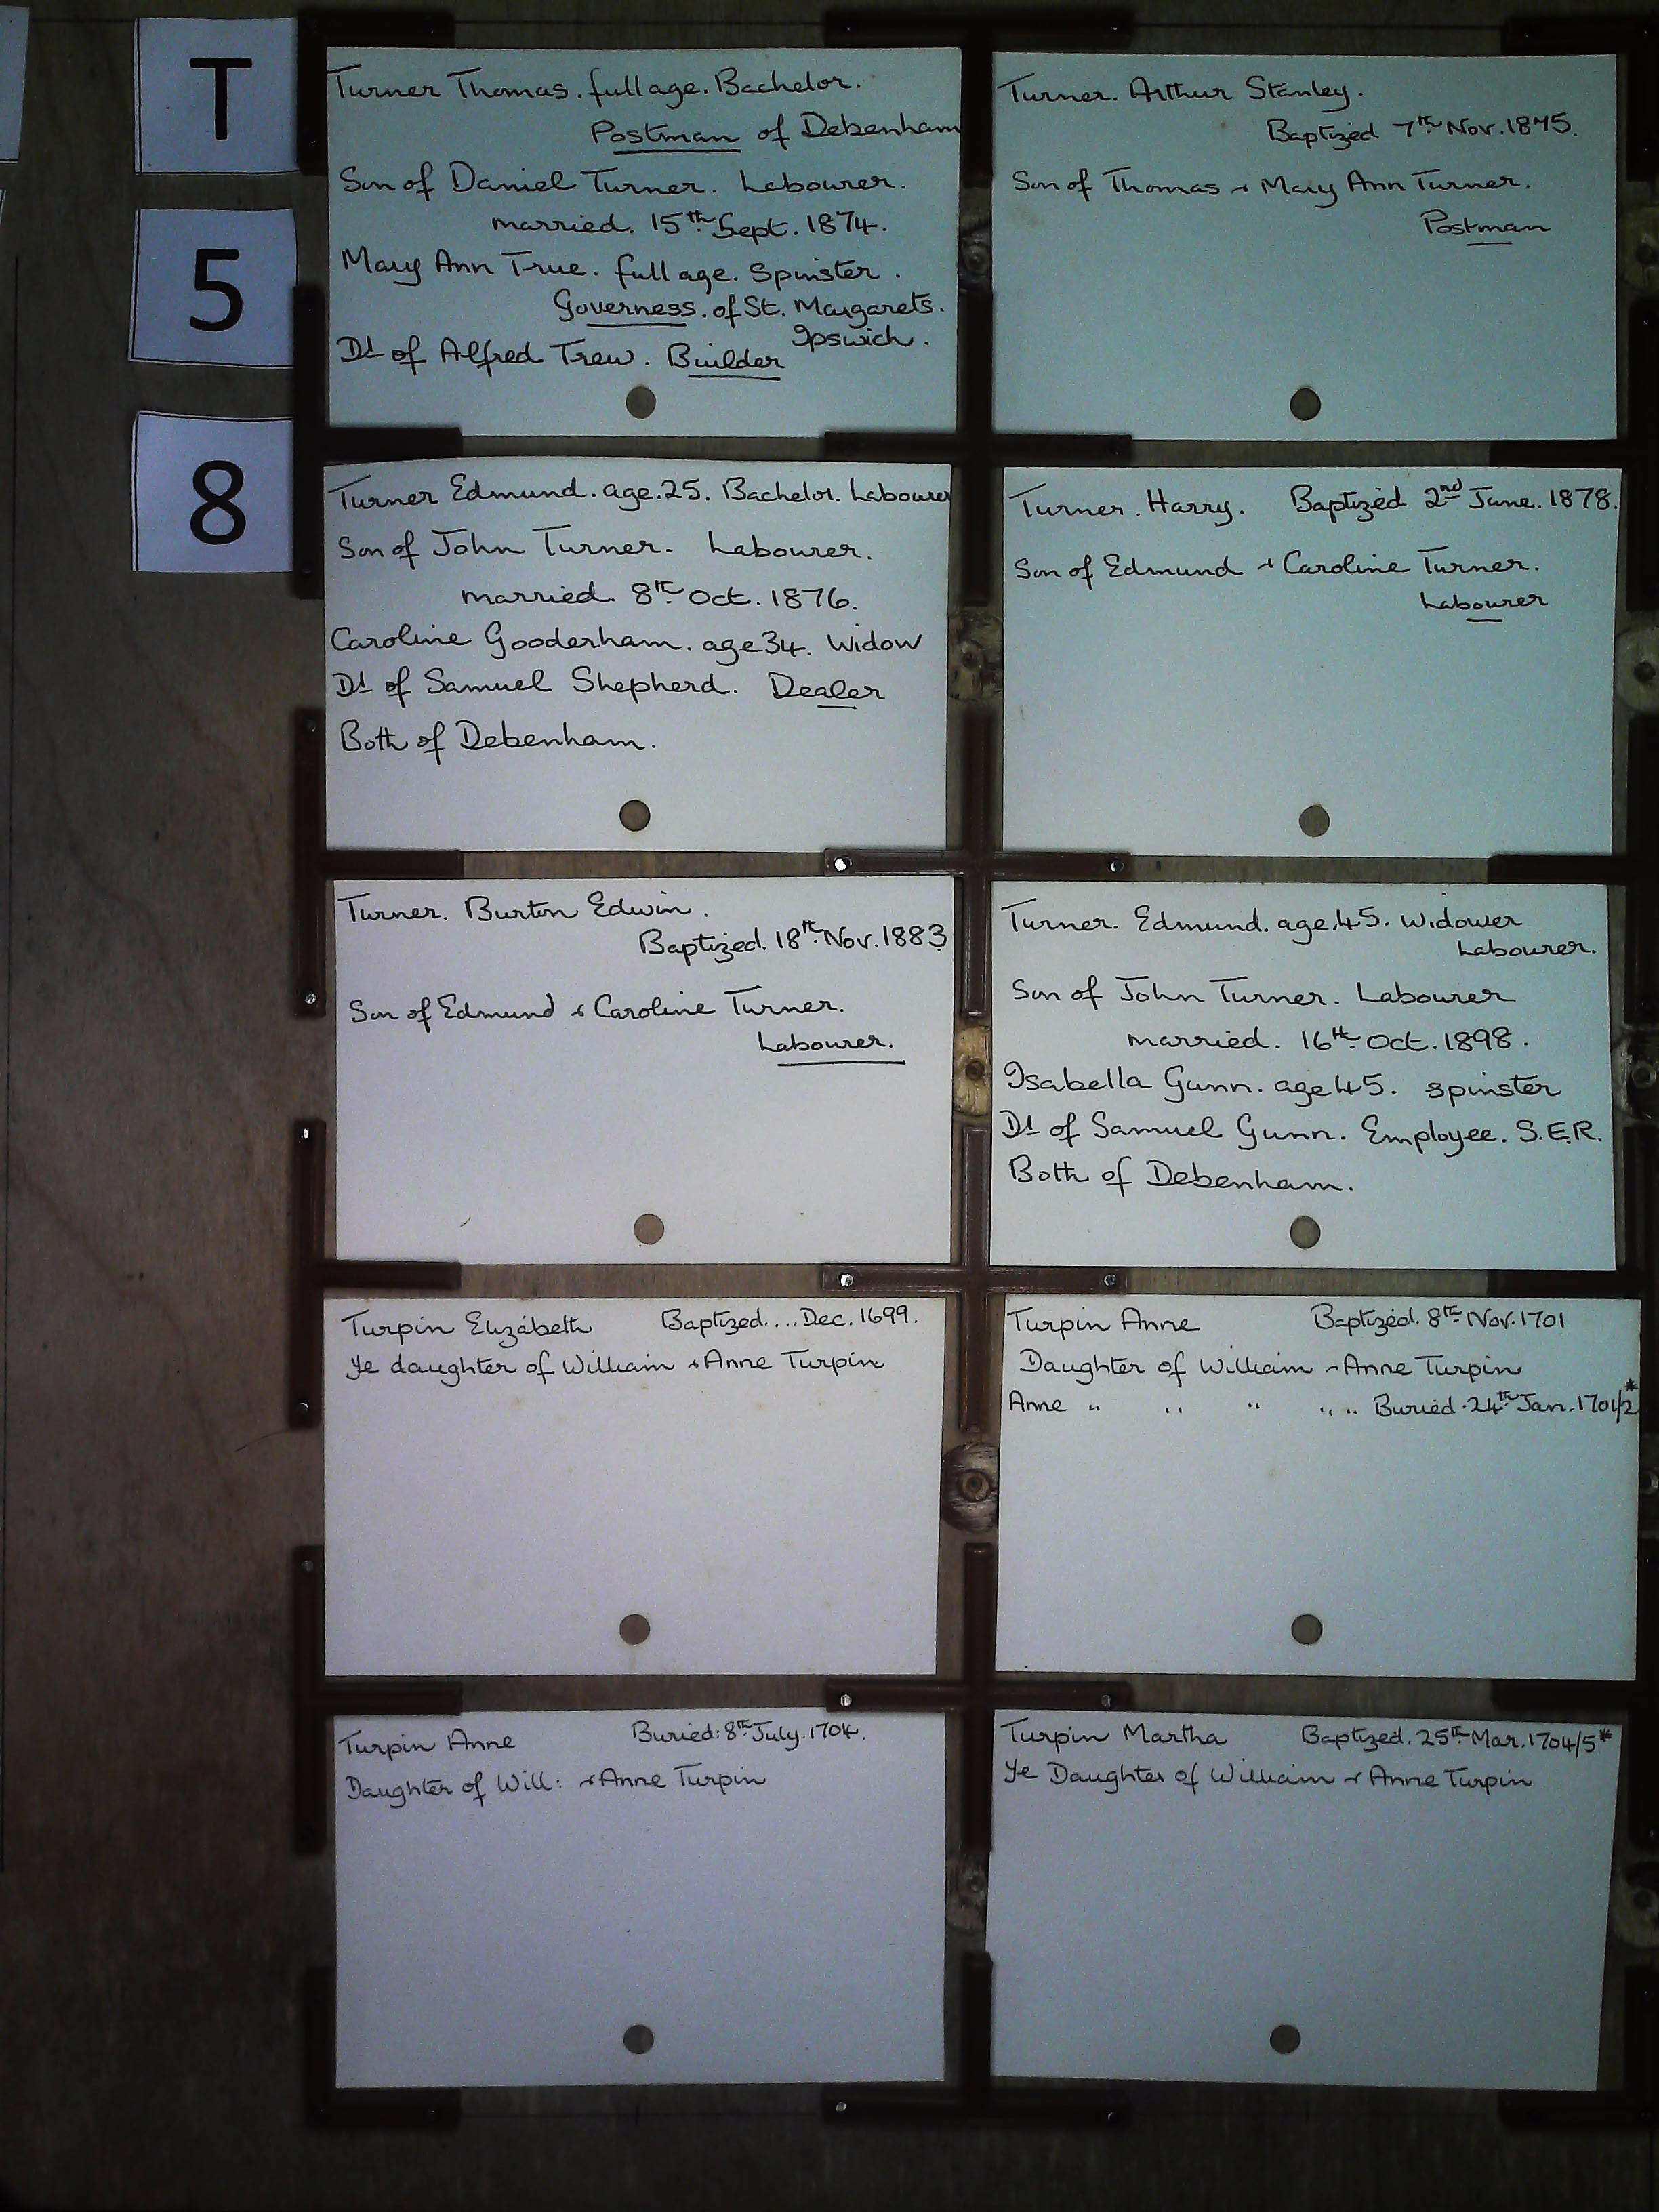 T
5
8
Turner Thomas. full age. Bachelor.
Postman of Debenham
Son of Daniel Turner. Labourer.
married. 15th Sept. 1874.
Mary Ann True. full age. Spinster.
Governess. of St. Margarets.
Ipswich.
Dt of Alfred Trew. Builder
Turner. Arthur Stanley.
Baptized 7th Nov. 1875.
Son of Thomas & Mary Ann Turner.
Postman
Turner Edmund. age. 25. Bachelor. Labourer
Son of John Turner. Labourer.
married 8th Oct. 1876.
Caroline Gooderham. age 34. Widow
Dt of Samuel Shepherd. Dealer
Both of Debenham.
Turner. Harry. Baptized 2nd June. 1878.
Son of Edmund & Caroline Turner.
Labourer
Turner. Burton Edwin.
Baptized. 18th Nov. 1883
Son of Edmund & Caroline Turner.
Labourer.
Turner. Edmund. age 45. Widower
Labourer.
Son of John Turner. Labourer
married. 16th Oct. 1898.
Isabella Gunn. age 45. Spinster
Dt of Samuel Gunn. Employee. S.E.R.
Both of Debenham.
Turpin Elizabeth Baptized.... Dec. 1699.
Ye daughter of William & Anne Turpin
Turpin Anne Baptized. 8th Nov. 1701
Daughter of William & Anne Turpin
Anne " " " " " Buried. 24th Jan. 1701/2*
Turpin Anne Buried: 8th July. 1704.
Daughter of Will: & Anne Turpin
Turpin Martha Baptized. 25th Mar. 1704/5*
Ye Daughter of William & Anne Turpin